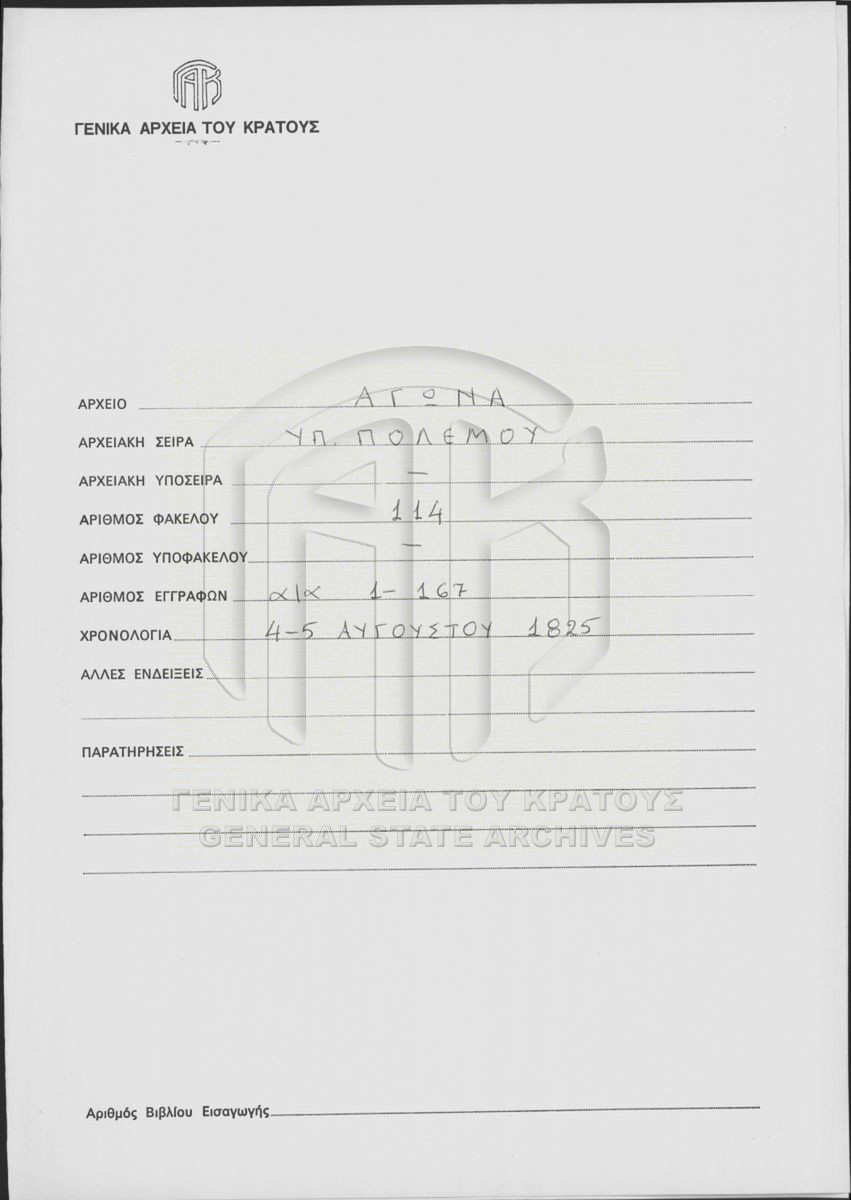 ΓΑΚ
ΓΕΝΙΚΑ ΑΡΧΕΙΑ ΤΟΥ ΚΡΑΤΟΥΣ
ΑΡΧΕΙΟ ΑΓΩΝΑ
ΑΡΧΕΙΑΚΗ ΣΕΙΡΑ ΥΠ. ΠΟΛΕΜΟΥ
ΑΡΧΕΙΑΚΗ ΥΠΟΣΕΙΡΑ —
ΑΡΙΘΜΟΣ ΦΑΚΕΛΟΥ 114
ΑΡΙΘΜΟΣ ΥΠΟΦΑΚΕΛΟΥ —
ΑΡΙΘΜΟΣ ΕΓΓΡΑΦΩΝ α/α 1- 167
ΧΡΟΝΟΛΟΓΙΑ 4-5 ΑΥΓΟΥΣΤΟΥ 1825
ΑΛΛΕΣ ΕΝΔΕΙΞΕΙΣ
ΠΑΡΑΤΗΡΗΣΕΙΣ
ΓΕΝΙΚΑ ΑΡΧΕΙΑ ΤΟΥ ΚΡΑΤΟΥΣ
GENERAL STATE ARCHIVES
Αριθμός Βιβλίου Εισαγωγής